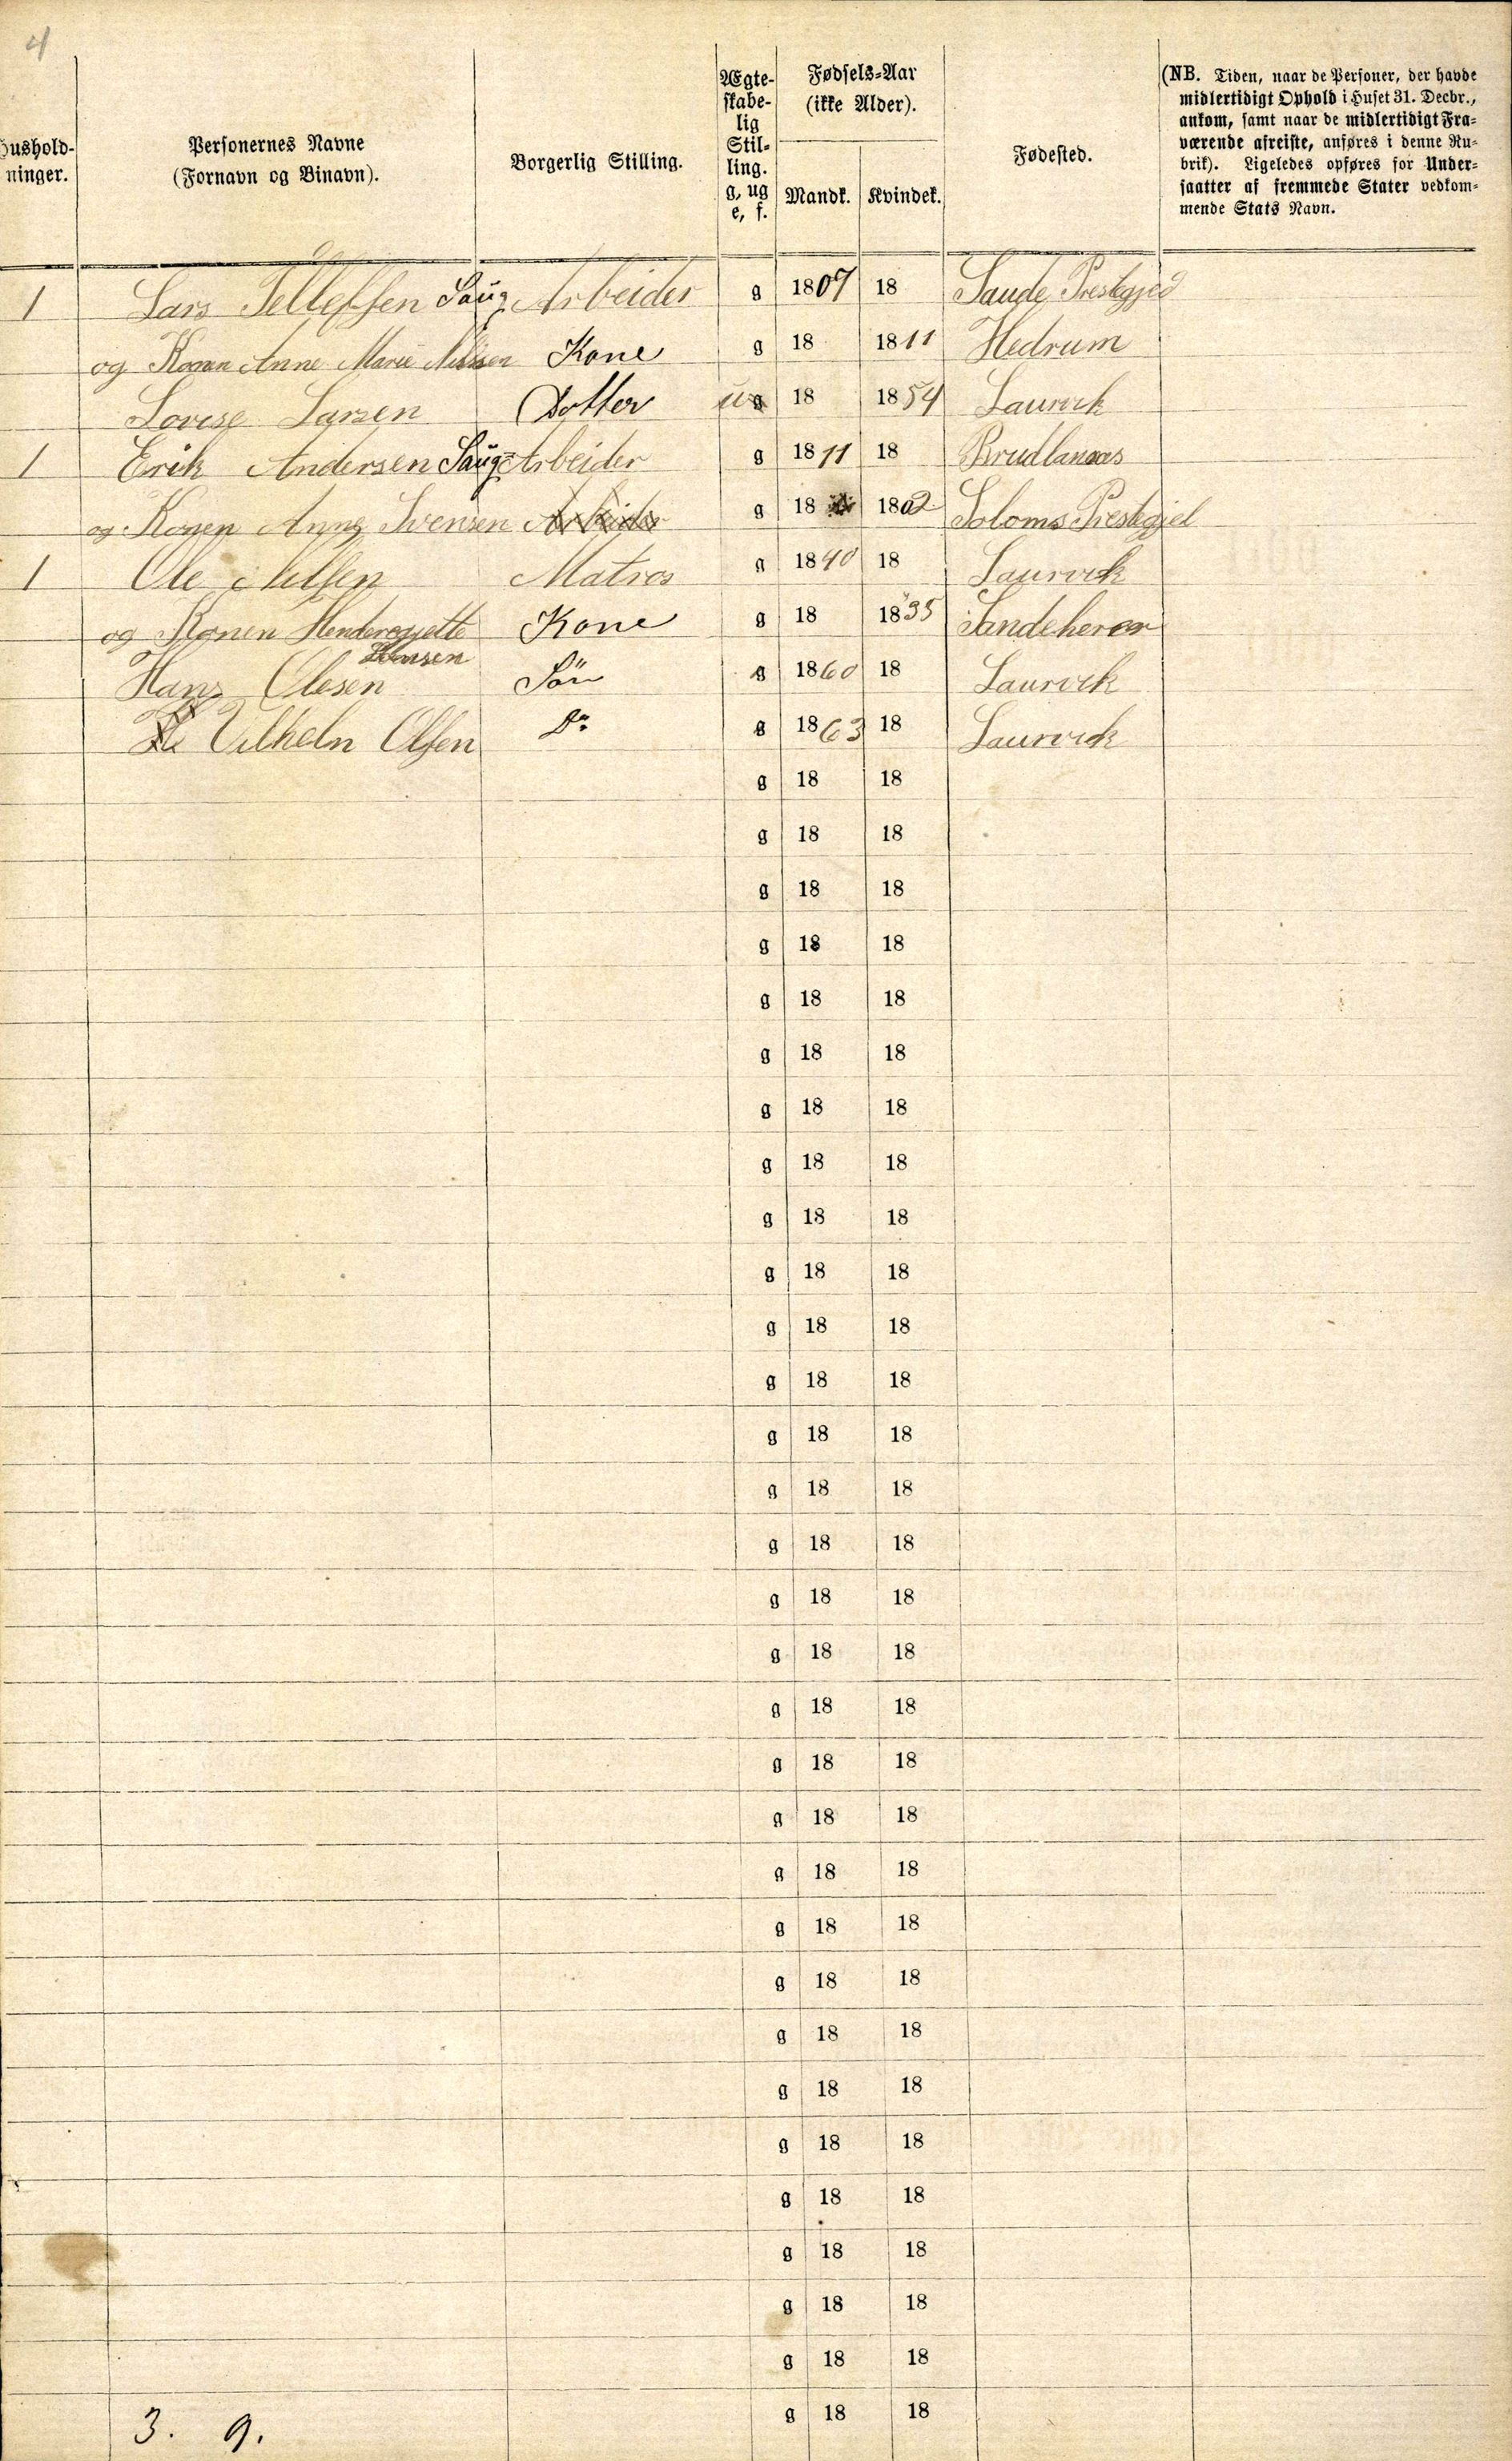 4
Hushold-
ninger.
Personernes Navne
(Fornavn og Binavn).
Borgerlig Stilling.
Ægte-
skabe-
lig
Stil-
ling.
g, ug
e, f.
Fødsels-Aar
(ikke Alder).
Mandk. Kvindek.
Fødested.
(NB. Tiden, naar de Personer, der havde
midlertidigt Ophold i Huset 31. Decbr.,
ankom, samt naar de midlertidigt Fra-
værende afreiste, anføres i denne Ru-
brik). Ligeledes opføres for Under-
saatter af fremmede Stater vedkom-
mende Stats Navn.
1 Lars Tellefsen Saug Arbeider g 1807 18 Saude Prestegjed
og Konen Anne Marie Nilsen Kone g 18 1811 Hedrum
Lovise Larsen Dotter ug 18 1854 Laurvik
1 Erik Andersen Saug- Arbeider g 1811 18 Brudlanæs
og Konen Anne Svensen Arbeider g 18 1802 Soloms Prestegjel
1 Ole Nilsen Matros g 1840 18 Laurvik
og Konen Hendergjette Kone g 18 1835 Sandeherer
Hansen
Hans Olesen Sön g 1860 18 Laurvik
Vilheln Olsen Do g 1863 18 Laurvik
g 18 18
g 18 18
g 18 18
g 18 18
g 18 18
g 18 18
g 18 18
g 18 18
g 18 18
g 18 18
g 18 18
g 18 18
g 18 18
g 18 18
g 18 18
g 18 18
g 18 18
g 18 18
g 18 18
g 18 18
g 18 18
g 18 18
g 18 18
g 18 18
g 18 18
g 18 18
g 18 18
g 18 18
g 18 18
g 18 18
g 18 18
3. 9.